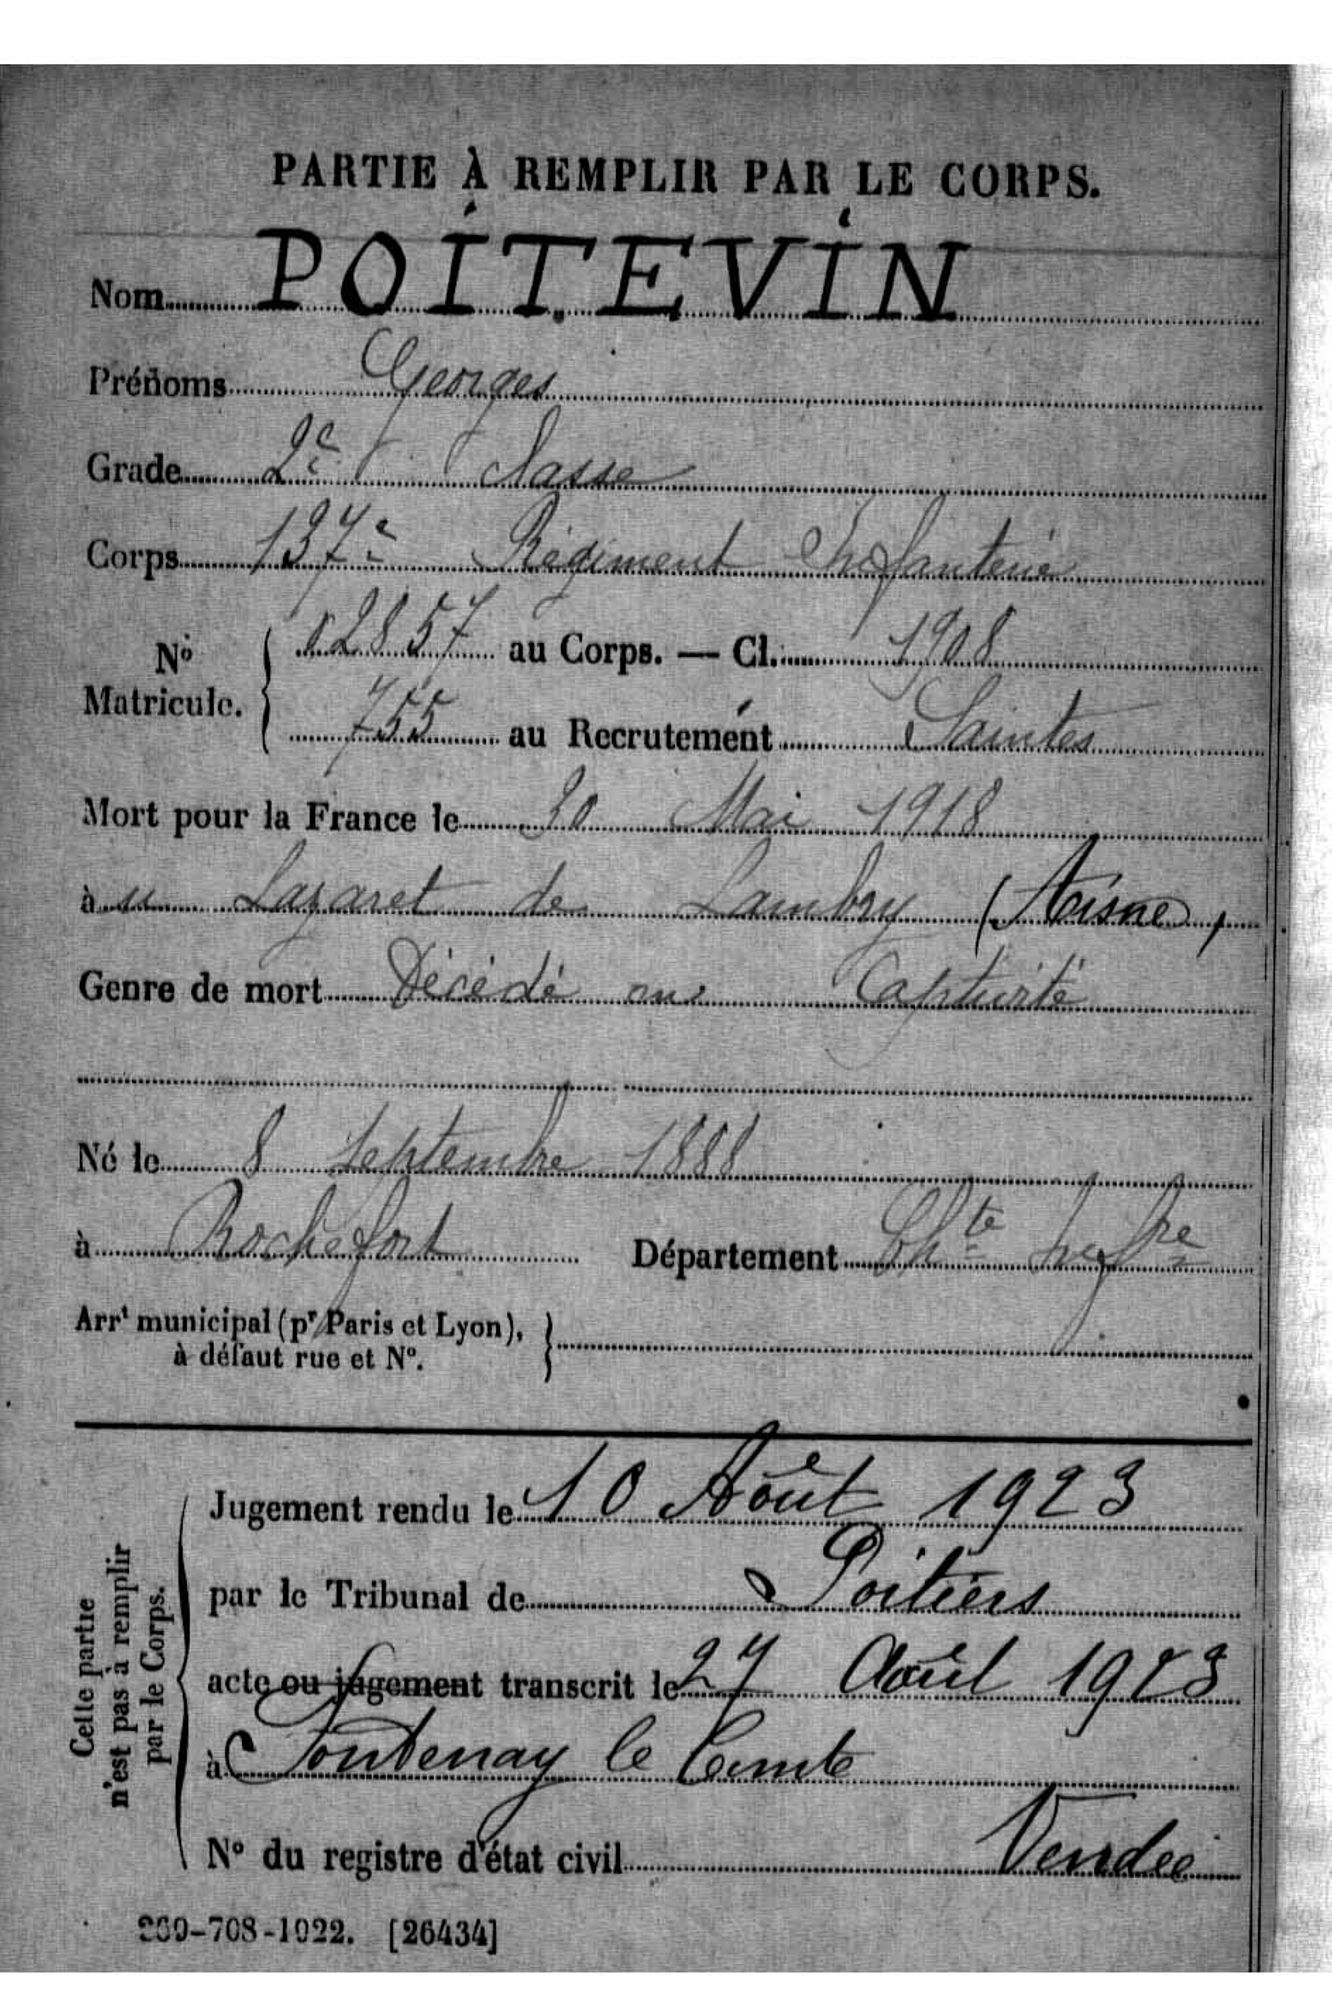 PARTIE À REMPLIR PAR LE CORPS.
Nom POITEVIN
Prénoms Georges
Grade 2e classe
Corps 137e Régiment Infanterie
No Matricule. 02857 au Corps. — Cl. 1908
755 au Recrutement Saintes
Mort pour la France le 30 Mai 1918
à u Lazaret de Lambry (Aisne)
Genre de mort Décédé en Captivité
Né le 8 Septembre 1888
à Rochefort Département Chte Infre
Arrt municipal (pr Paris et Lyon),
à défaut rue et No.
Cette partie
n'est pas à remplir
par le Corps.
Jugement rendu le 10 Août 1923
par le Tribunal de Poitiers
acte ou jugement transcrit le 27 Août 1923
à Fontenay le Comte
No du registre d'état civil Vendée
-708-1922. [26434]